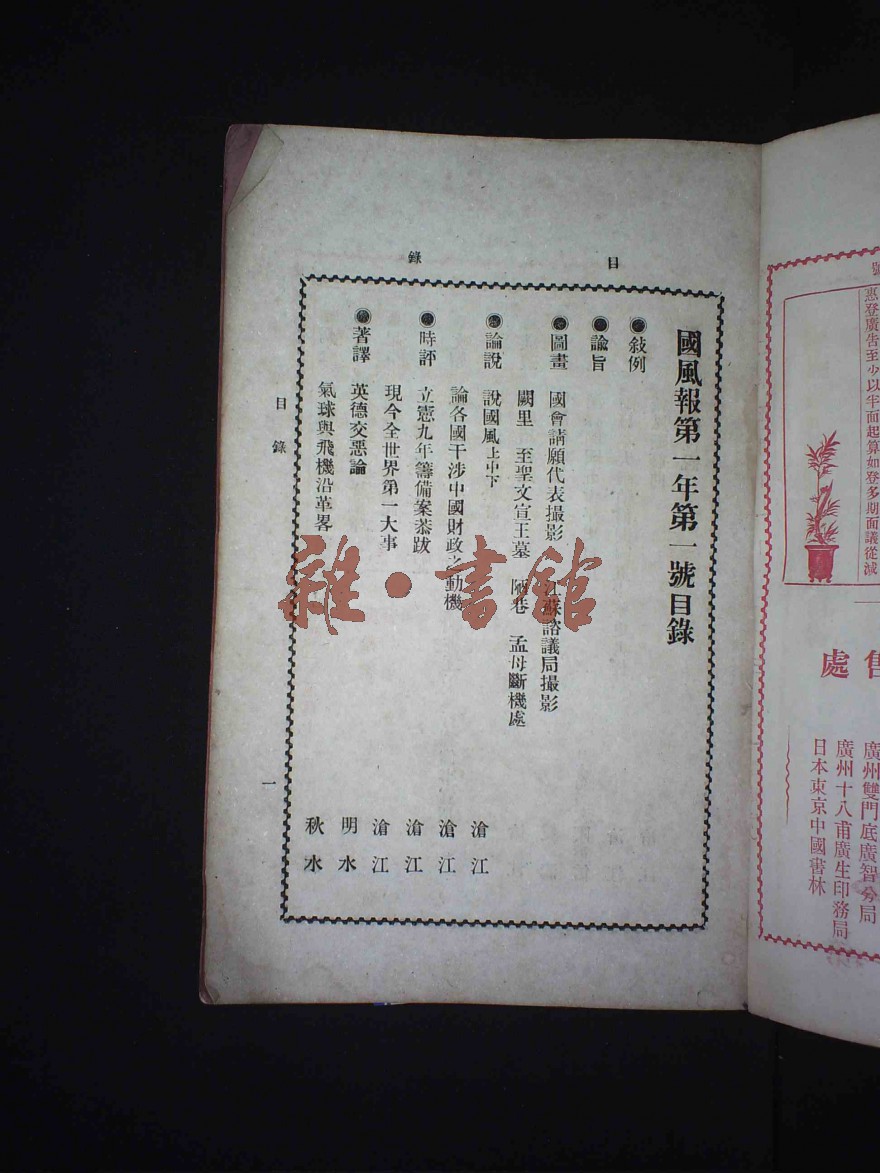 目錄
國風報第一年第一號目錄
敍例
諭旨
圖畫 國會請願代表撮影 江蘇諮議局撮影
闕里 至聖文宣王墓 陋巷 孟母斷機處
論說 說國風上中下 滄江
論各國干涉中國財政之動機 滄江
時評 立憲九年籌備案恭跋 滄江
現今全世界第一大事 滄江
著譯 英德交惡論 明水
氣球與飛機沿革畧 秋水
目錄
一
雜·書館
號
惠登廣告至少以半面起算如登多期面議從減
售處
廣州雙門底廣智分局
廣州十八甫廣生印務局
日本東京中國書林